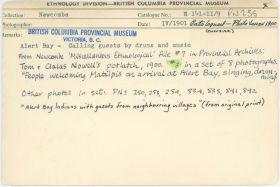 ETHNOLOGY DIVISION—BRITISH COLUMBIA PROVINCIAL MUSEUM
Collection Newcombe Catalogue N
Photographer: Date IV/1901
BRITISH COLUMBIA PROVINCIAL MUSEUM
VICTORIA, B. C.
Alert Bay - Calling guests by drums and music
From Newcombe "Miscellaneous Ethnological" file #7 in Provincial Archives:
Tom + Nowell's potlatch, 1900. #3 in a set of 8 photographs.
"People welcoming Matilpis on arrival at Alert Bay, singing, drumming
Other photos in set: PNs 250, 253, 254, 834, 835, 841, 842
"Alert Bay Indians with guests from neighbouring villages" (from original print)